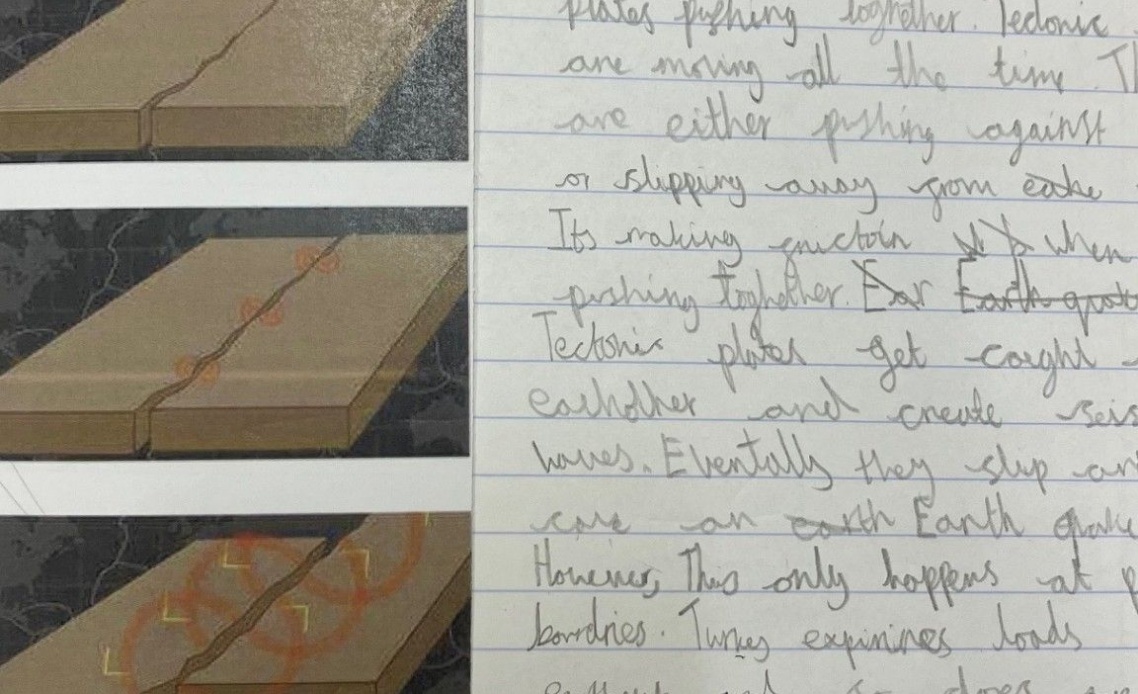 plates pushing toghether. Tectonic
are moving all the time. Th
are either pushing against
or slipping away from eache
Its making when
pushing toghether. Ear Earth quak
Tectonic plates get caught
eachother and create seis
waves. Eventally they slip an
an earth Earth quake
However, This only happens at p
bowdries. Turkey loads